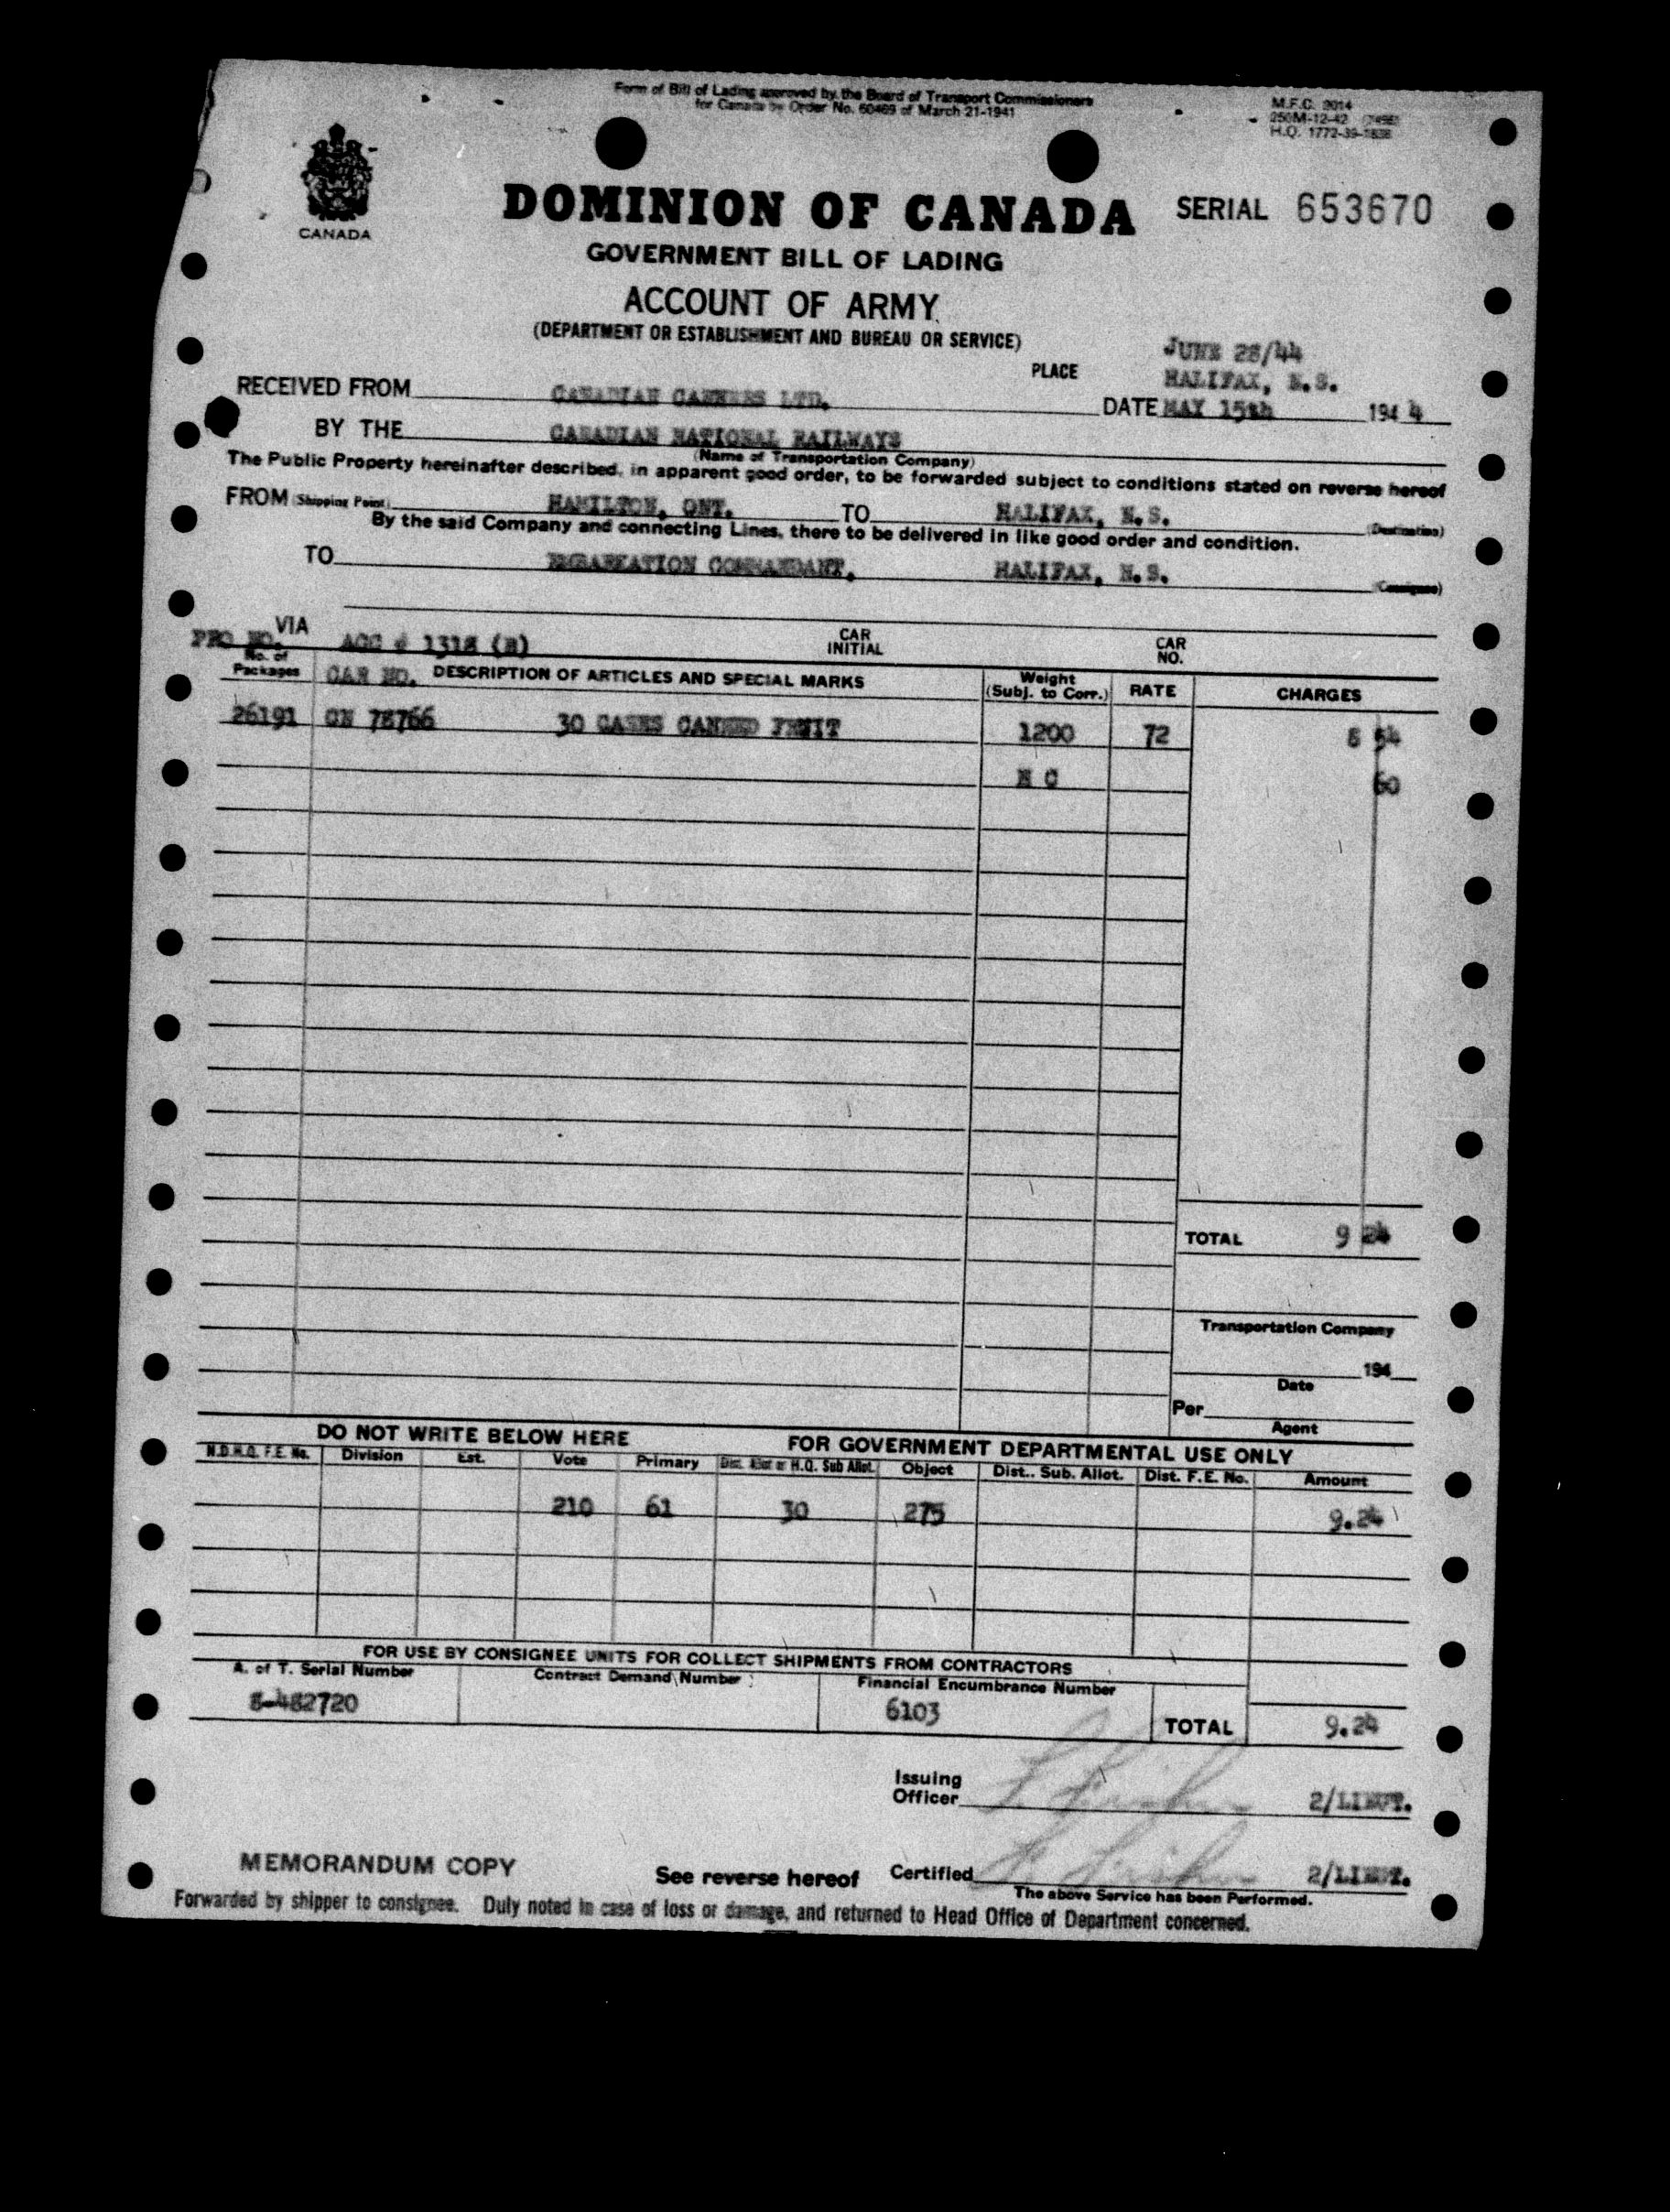 Form of Bill of Lading approved by the Board of Transport Commissioners
for Canada by Order No. 60469 of March 21-1941
M.F.C. 2014
250M-12-42
H.Q. 1772-39-1838
CANADA
DOMINION OF CANADA
SERIAL 653670
GOVERNMENT BILL OF LADING
ACCOUNT OF ARMY
(DEPARTMENT OR ESTABLISHMENT AND BUREAU OR SERVICE)
JUNE 28/44
PLACE HALIFAX, N.S.
RECEIVED FROM CANADIAN CANNERS LTD. DATE MAY 15th 1944
BY THE CANADIAN NATIONAL RAILWAYS
(Name of Transportation Company)
The Public Property hereinafter described, in apparent good order, to be forwarded subject to conditions stated on reverse hereof
FROM (Shipping Point) HAMILTON, ONT. TO HALIFAX, N.S. (Destination)
By the said Company and connecting Lines, there to be delivered in like good order and condition.
TO EMBARKATION COMMANDANT, HALIFAX, N.S. (Consignee)
VIA CAR INITIAL CAR NO.
PRO NO. ACC # 1318 (B)
No. of Packages CAR NO. DESCRIPTION OF ARTICLES AND SPECIAL MARKS Weight (Subj. to Corr.) RATE CHARGES
26191 CN 78766 30 CASES CANNED FRUIT 1200 72 8 64
N C 60
TOTAL 9 24
Transportation Company
194
Date
Per
Agent
DO NOT WRITE BELOW HERE FOR GOVERNMENT DEPARTMENTAL USE ONLY
N.D.H.Q. F.E. No. Division Est. Vote Primary Dist. Allot or H.Q. Sub Allot. Object Dist.. Sub. Allot. Dist. F.E. No. Amount
210 61 30 275 9.24
FOR USE BY CONSIGNEE UNITS FOR COLLECT SHIPMENTS FROM CONTRACTORS
A. of T. Serial Number Contract Demand Number Financial Encumbrance Number
8-482720 6103 TOTAL 9.24
Issuing
Officer 2/LIEUT.
MEMORANDUM COPY See reverse hereof Certified 2/LIEUT.
The above Service has been Performed.
Forwarded by shipper to consignee. Duly noted in case of loss or damage, and returned to Head Office of Department concerned.